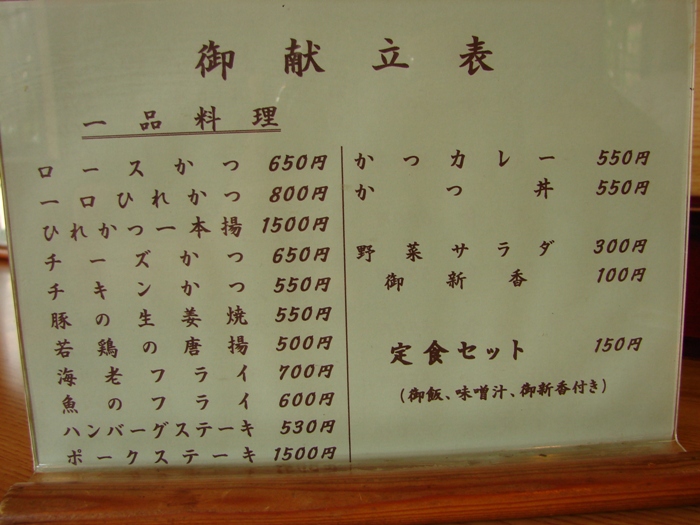 御献立表
一品料理
ロースかつ 650円
一口ひれかつ 800円
ひれかつ一本揚 1500円
チーズかつ 650円
チキンかつ 550円
豚の生姜焼 550円
若鶏の唐揚 500円
海老フライ 700円
魚のフライ 600円
ハンバーグステーキ 530円
ポークステーキ 1500円
かつカレー 550円
かつ丼 550円
野菜サラダ 300円
御新香 100円
定食セット 150円
(御飯、味噌汁、御新香付き)